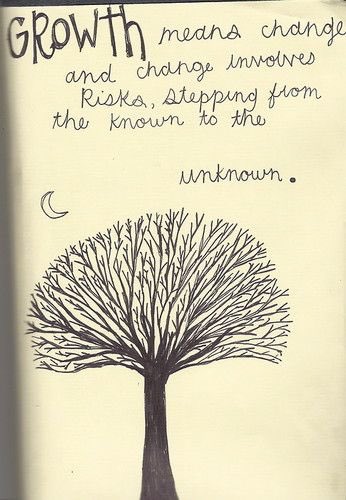 GROWTh means change
and change involves
Risks, stepping from
the known to the
unknown.